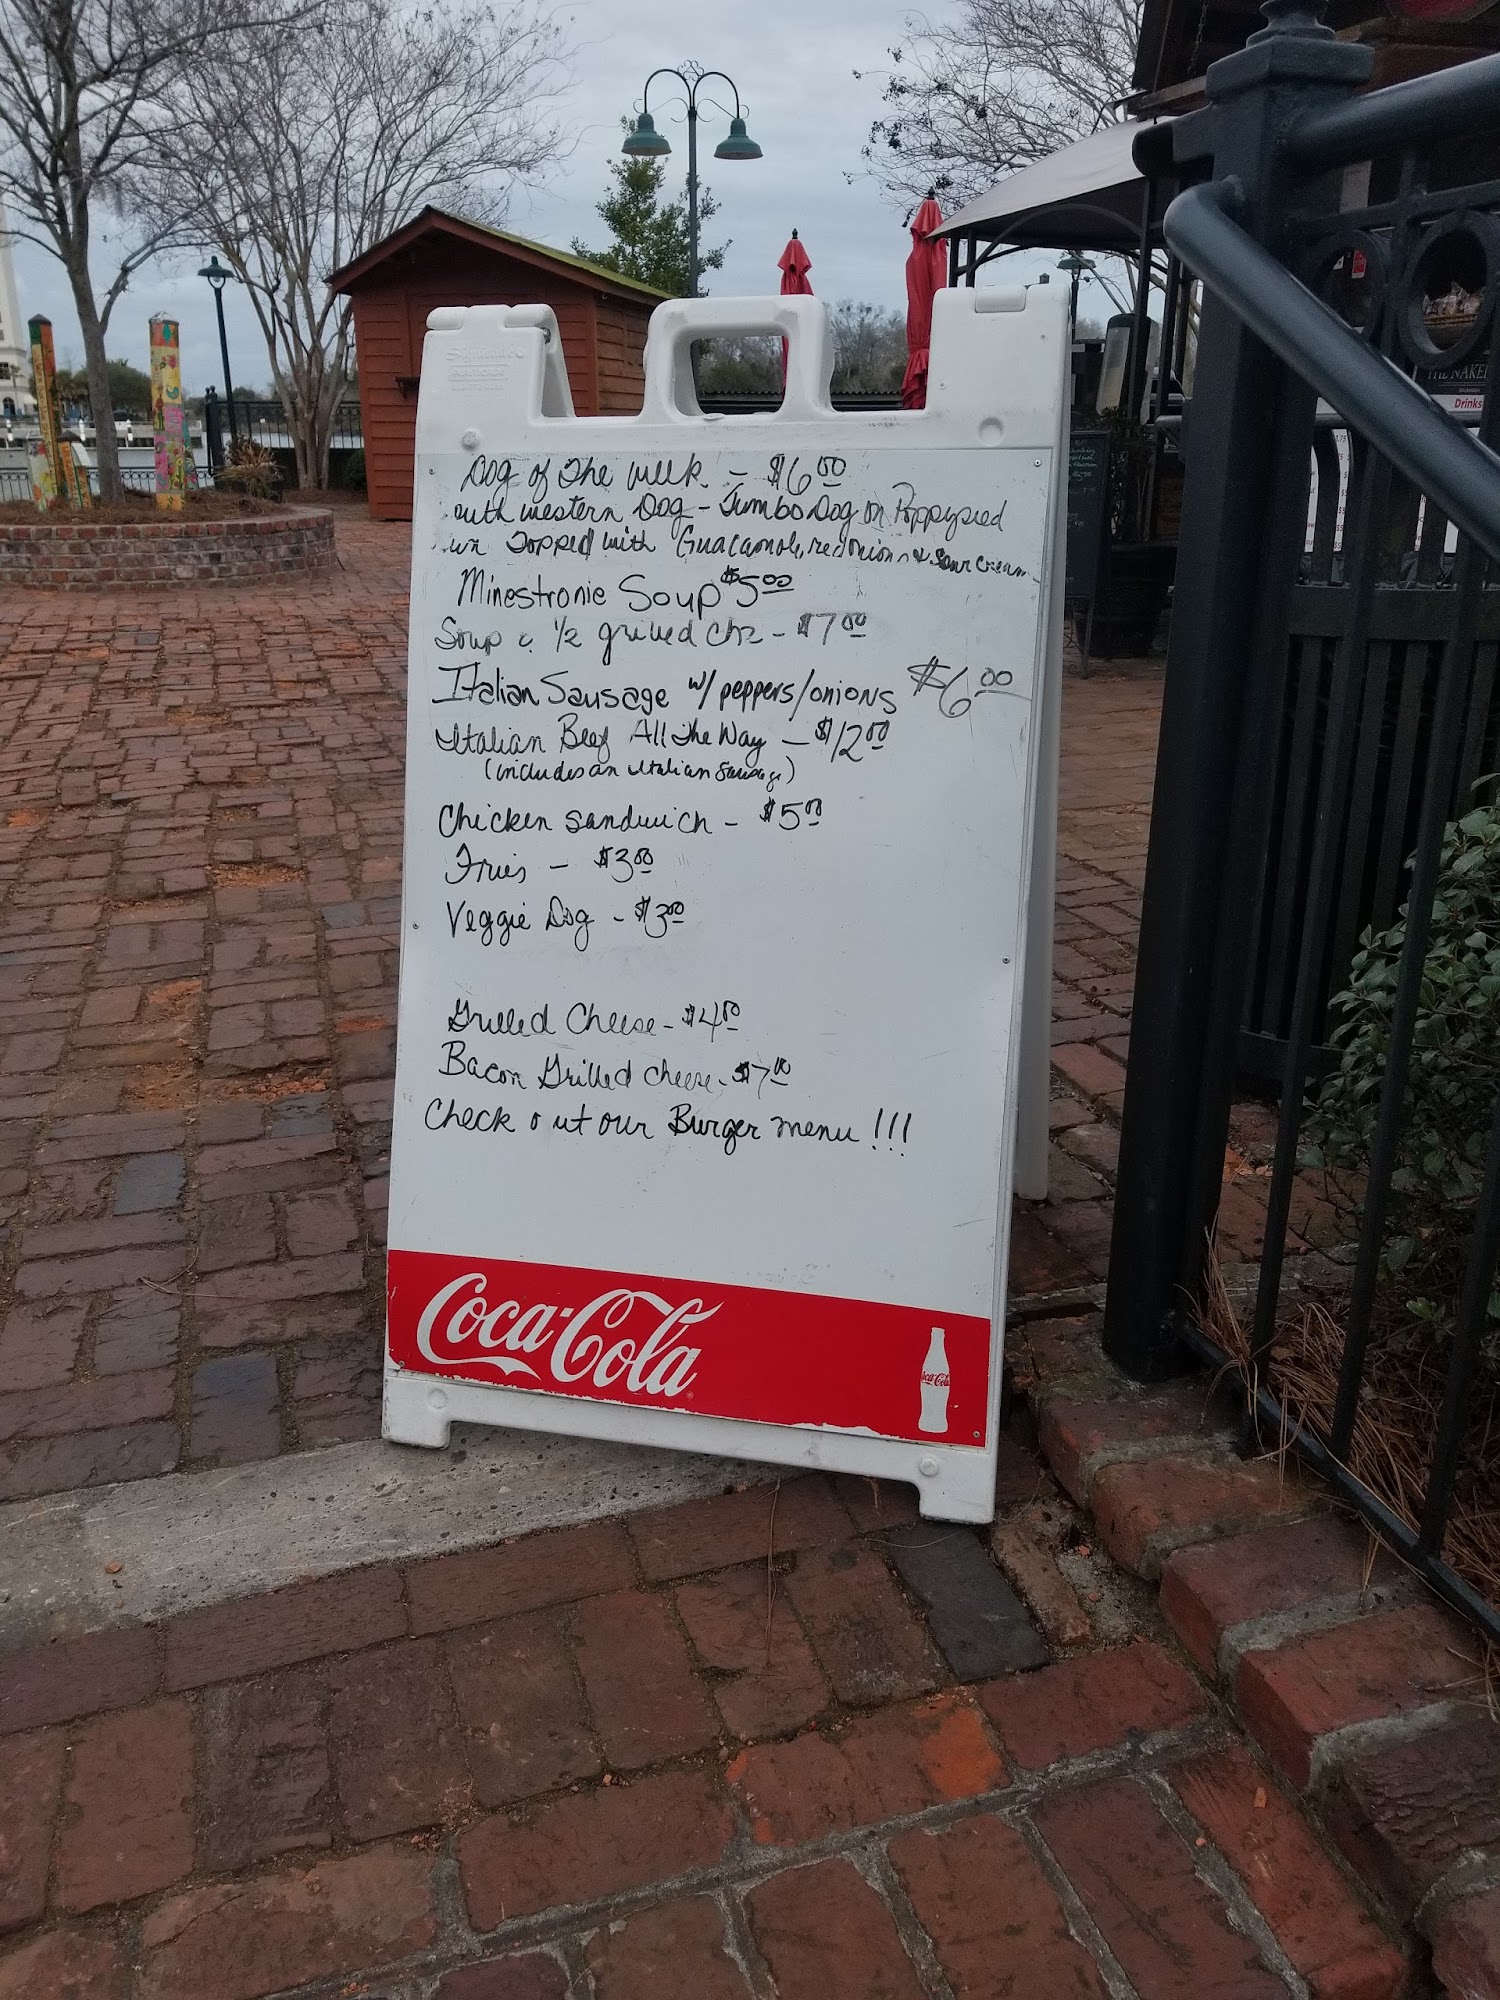 Dog of The week - $6.00
outh western Dog - Jumbo Dog on Poppyseed
Topped with Guacamole, red onions & Sour Cream
Minestronie Soup $5.00
Soup & 1/2 grilled chz - $7.00
Italian Sausage w/ peppers/onions $6.00
Italian Beef All The Way - $12.00
(includes an Italian Sausage)
Chicken sandwich - $5.00
Fries - $3.00
Veggie Dog - $3.00
Grilled Cheese - $4.00
Bacon Grilled cheese - $7.00
Check out our Burger menu !!!
Coca-Cola
Coca-Cola
THE NAKED
Drinks